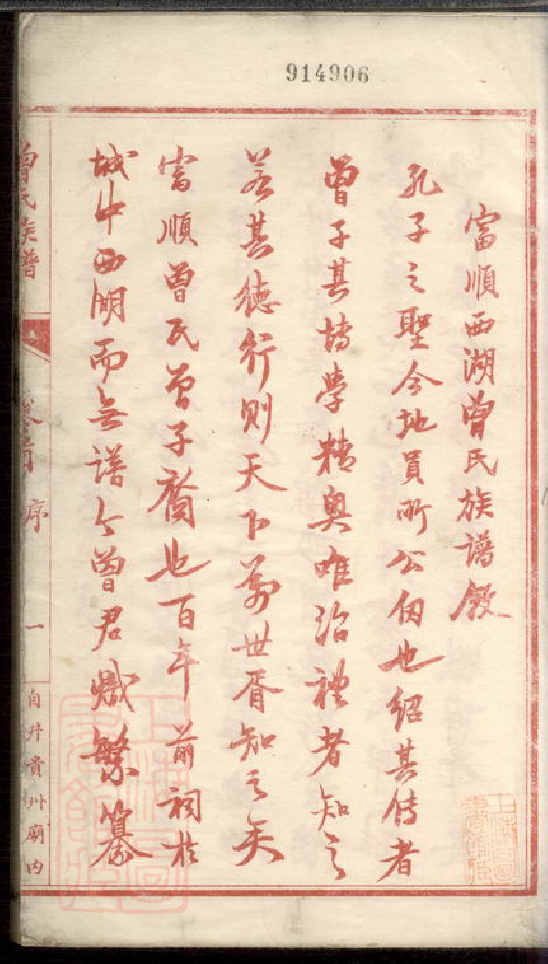 914906
富順西湖曾氏族譜敘
孔子之聖今地員所公仞也紹其傳者
曾子其博學精奧唯治禮者知之
若其德行則天下萬世胥知之矣
富順曾氏曾子裔也百年前祠於
城中西湖而無譜今曾君熾繁纂
曾氏族譜
卷首 序
一
自井貴州廟內
上海圖書館藏